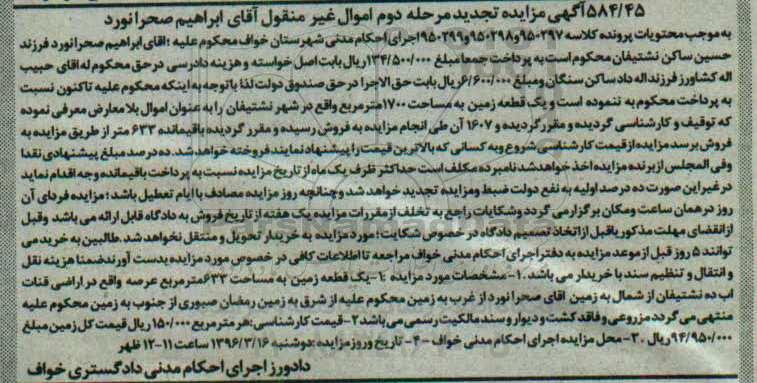 ۵۸۴/۴۵آگهی مزایده تجدید مرحله دوم اموال غیر منقول آقای ابراهیم صحرانورد
به موجب محتویات پرونده کلاسه ۹۵۰۲۹۷و۹۵۰۲۹۸و۹۵۰۲۹۹اجرای احکام مدنی شهرستان خواف محکوم علیه :اقای ابراهیم صحرانورد فرزند
حسین ساکن نشتیفان محکوم است به پرداخت جمعا مبلغ ۱۳۴/۵۰۰/۰۰۰ریال بابت اصل خواسته و هزینه دادرسی در حق محکوم له اقای حبیب
اله کشاورز فرزند اله داد ساکن سنگان ومبلغ ۶/۶۰۰/۰۰۰ریال بابت حق الاجرا در حق صندوق دولت لذا با توجه به اینکه محکوم علیه تاکنون نسبت
به پرداخت محکوم به ننموده است و یک قطعه زمین به مساحت ۱۷۰۰مترمربع واقع در شهر نشتیفان را به عنوان اموال بلامعارض معرفی نموده
که توقیف و کارشناسی گردیده و مقرر گردیده و ۱۶۰۷ آن طی انجام مزایده به فروش رسیده و مقرر گردیده باقیمانده ۶۳۳ متر از طریق مزایده به
فروش برسد مزایده از قیمت کارشناسی شروع و به کسانی که بالاترین قیمت را پیشنهاد نمایند فروخته خواهد شد. ده درصد مبلغ پیشنهادی نقدا
وفی المجلس از برنده مزایده اخذ خواهد شد نامبرده مکلف است حداکثر ظرف یک ماه از تاریخ مزایده نسبت به پرداخت باقیمانده وجه اقدام نماید
در غیر این صورت ده درصد اولیه به نفع دولت ضبط ومزایده تجدید خواهد شد وچنانچه روز مزایده مصادف با ایام تعطیل باشد؛ مزایده فردای آن
روز در همان ساعت ومکان برگزار می گردد وشکایات راجع به تخلف از مقررات مزایده یک هفته از تاریخ فروش به دادگاه قابل ارائه می باشد وقبل
از انقضای مهلت مذکور یا قبل از اتخاذ تصمیم دادگاه در خصوص شکایت؛ مورد مزایده به خریدار تحویل و منتقل نخواهد شد. طالبین به خرید می
توانند ۵ روز قبل از موعد مزایده به دفتر اجرای احکام مدنی خواف مراجعه تا اطلاعات کافی در خصوص مورد مزایده بدست آورند ضمنا هزینه نقل
و انتقال و تنظیم سند با خریدار می باشد. ۱- مشخصات مورد مزایده :۱-یک قطعه زمین به مساحت ۶۳۳مترمربع عرصه واقع در اراضی قنات
اب ده نشتیفان از شمال به زمین اقای صحرانورد از غرب به زمین محکوم علیه از شرق به زمین رمضان صبوری از جنوب به زمین محکوم علیه
منتهی می گردد مزروعی و فاقد کشت و دیوار و سند مالکیت رسمی می باشد ۲- قیمت کارشناسی: هر مترمربع ۱۵۰/۰۰۰ ریال قیمت کل زمین مبلغ
۹۴/۹۵۰/۰۰۰ریال .۳- محل مزایده اجرای احکام مدنی خواف -۴- تاریخ وروز مزایده :دوشنبه ۱۳۹۶/۳/۱۶ ساعت ۱۱-۱۲ ظهر
دادورز اجرای احکام مدنی دادگستری خواف